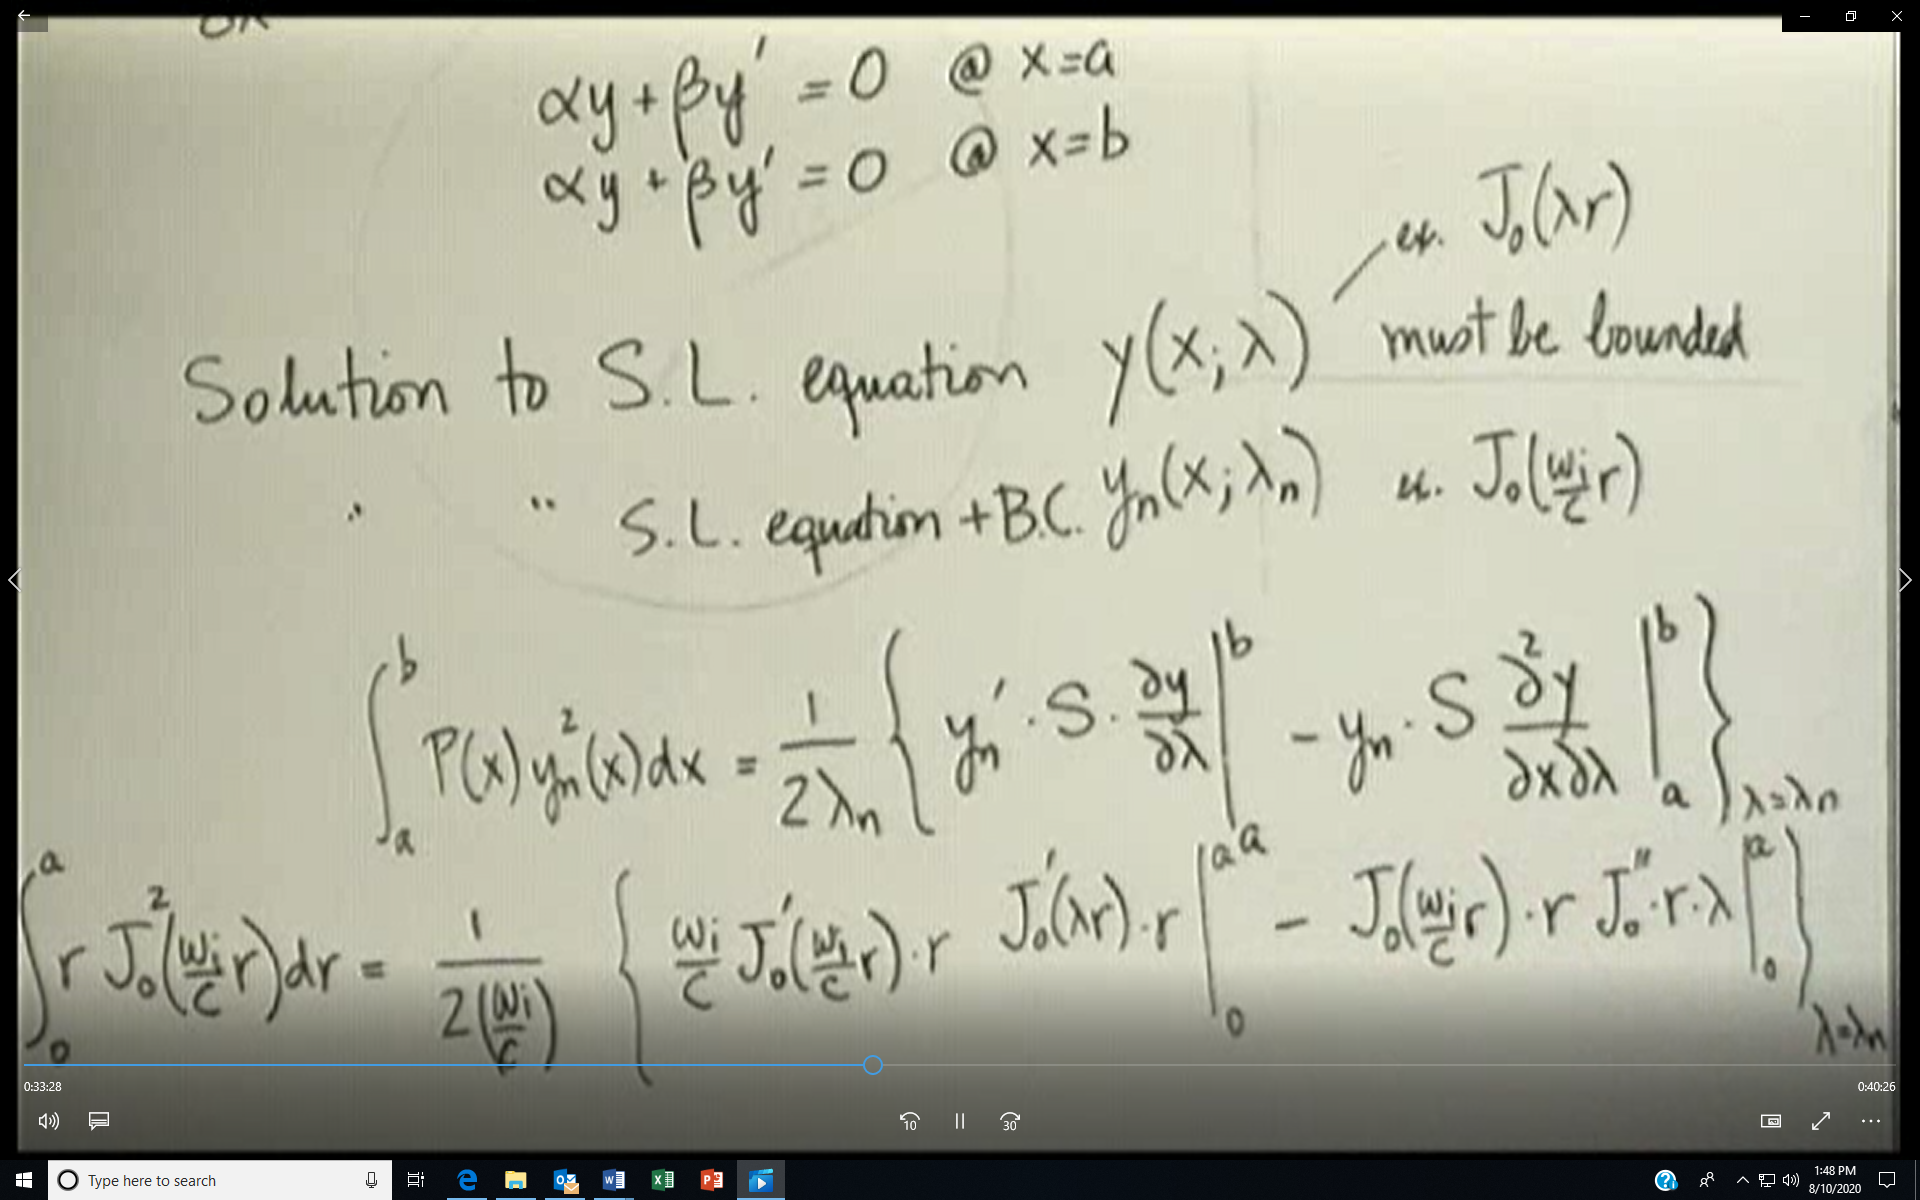 αy + βy' = 0 @ x=a
αy + βy' = 0 @ x=b
ex. J₀(λr)
Solution to S.L. equation y(x;λ) must be bounded
" " S.L. equation + B.C. yₙ(x;λₙ) ex. J₀(ωᵢ/c r)
∫ₐᵇ P(x) yₙ²(x) dx = 1/2λₙ { yₙ' · S · ∂y/∂λ |ₐᵇ − yₙ · S ∂²y/∂x∂λ |ₐᵇ } λ=λₙ
∫₀ᵃ r J₀²(ωᵢ/c r) dr = 1/2(ωᵢ/c) { ωᵢ/c J₀'(ωᵢ/c r) · r J₀'(λr) · r |₀ᵃ a − J₀(ωᵢ/c r) · r J₀'' · r · λ |₀ᵃ } λ=λₙ
0:33:28
0:40:26
10
30
Type here to search
1:48 PM
8/10/2020